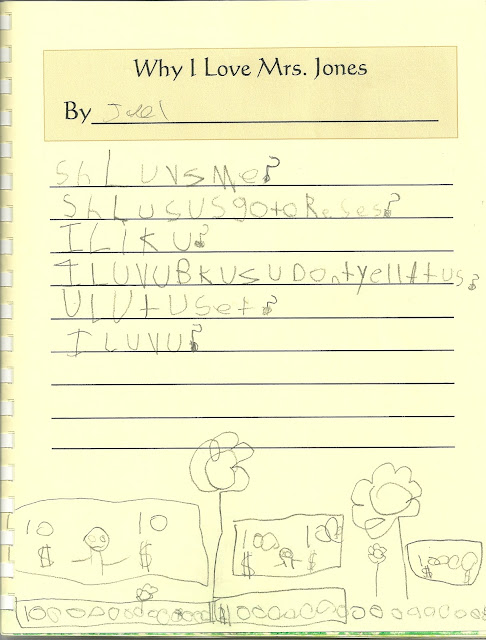 Why I Love Mrs. Jones
By Joel
Sh L UVS Me?
Sh LUSUS goto Reses?
I LIK U?
I LUVU BKUS U Dont yell At us?
U LUt U S et?
I LUVU?
10 10
$ $
100 100
$ $